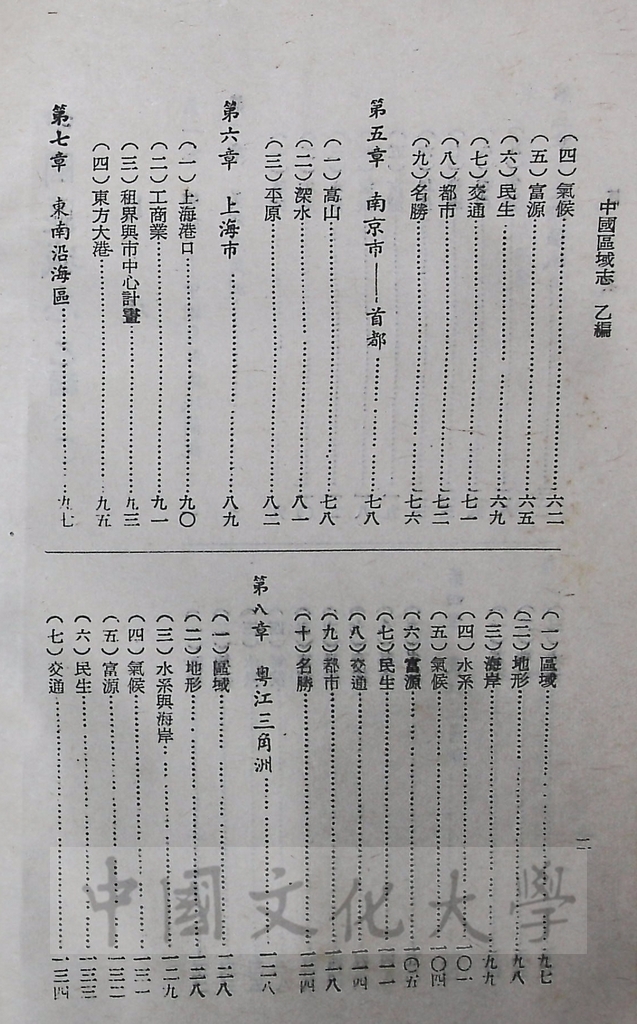 中國區域志 乙編
二
(四)氣候……六二
(五)富源……六五
(六)民生……六九
(七)交通……七一
(八)都市……七二
(九)名勝……七六
第五章 南京市——首都……七八
(一)高山……七八
(二)深水……八一
(三)平原……八二
第六章 上海市……八九
(一)上海港口……九〇
(二)工商業……九一
(三)租界與市中心計畫……九三
(四)東方大港……九五
第七章 東南沿海區……九七
(一)區域……九七
(二)地形……九八
(三)海岸……九九
(四)水系……一〇一
(五)氣候……一〇四
(六)富源……一〇五
(七)民生……一一一
(八)交通……一一四
(九)都市……一一八
(十)名勝……一二四
第八章 粵江三角洲……一二八
(一)區域……一二八
(二)地形……一二八
(三)水系與海岸……一二九
(四)氣候……一三一
(五)富源……一三二
(六)民生……一三三
(七)交通……一三四
中國文化大學